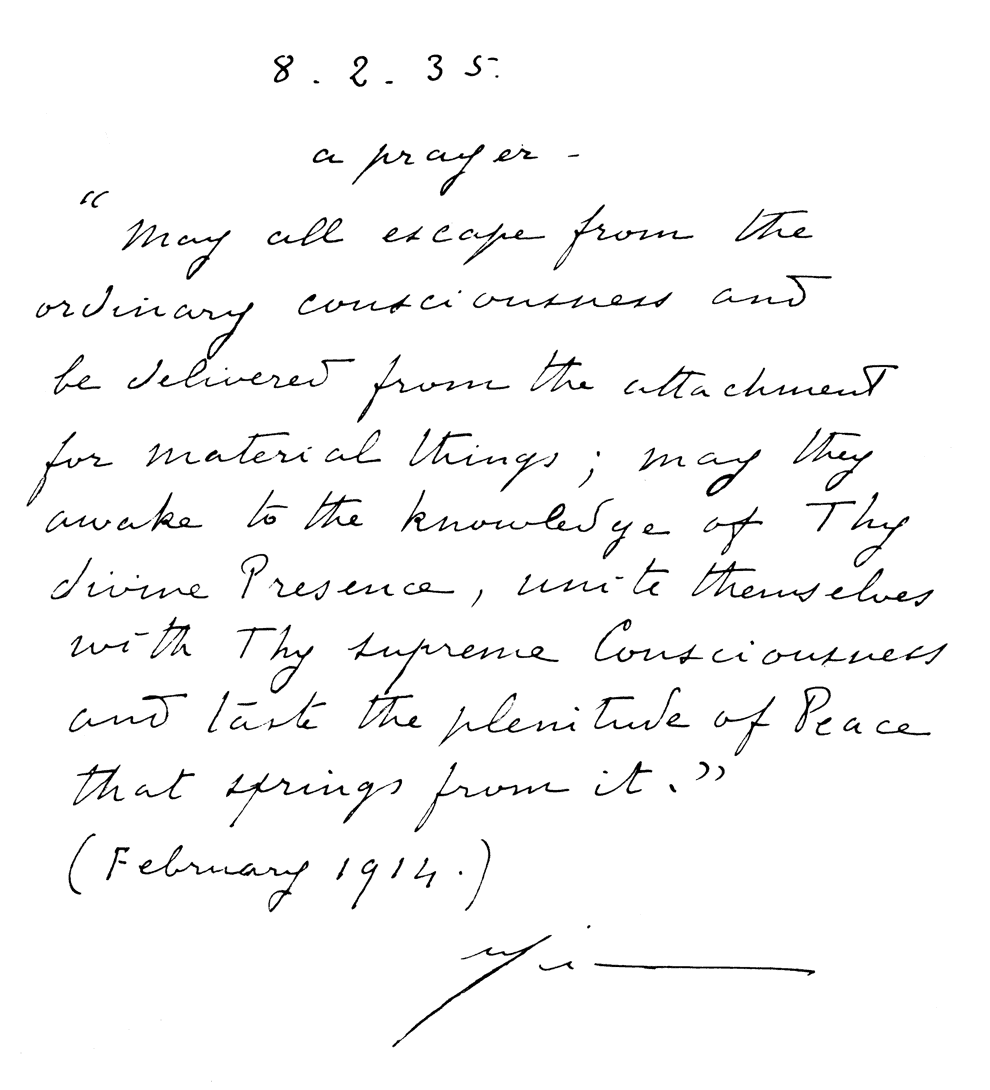 8.2.35.
a prayer -
"May all escape from the
ordinary consciousness and
be delivered from the attachment
for material things; may they
awake to the knowledge of Thy
divine Presence, unite themselves
with Thy supreme Consciousness
and taste the plenitude of Peace
that springs from it."
(February 1914.)